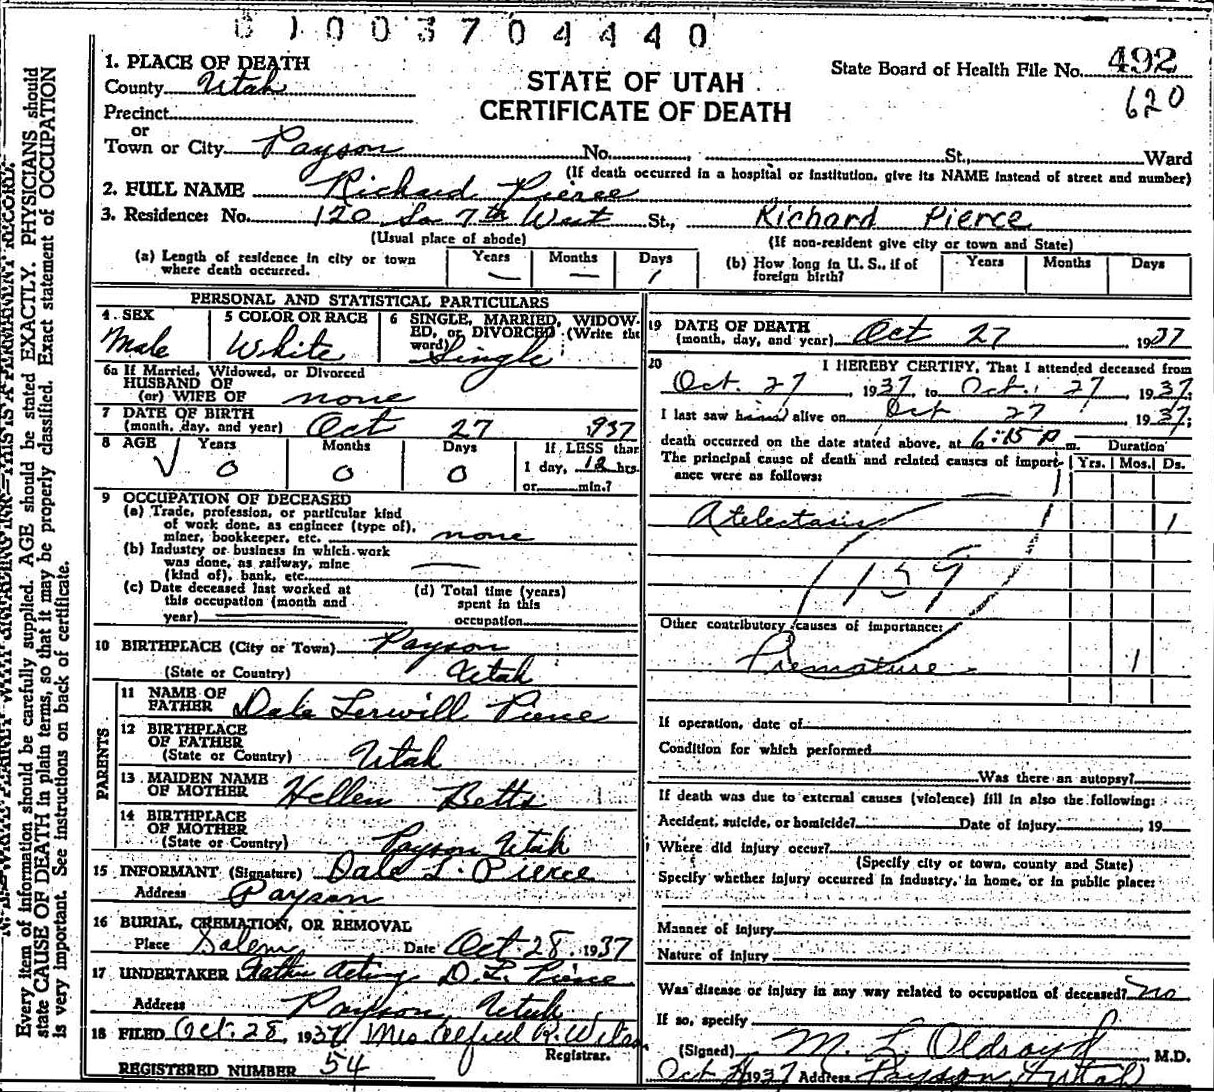 81003704440
STATE OF UTAH
CERTIFICATE OF DEATH
State Board of Health File No. 492
620
1. PLACE OF DEATH
County Utah
Precinct
or
Town or City Payson No. St., Ward
(If death occurred in a hospital or institution, give its NAME instead of street and number)
2. FULL NAME Richard Pierce
3. Residence: No. 120 So 7th West St., Richard Pierce
(Usual place of abode) (If non-resident give city or town and State)
(a) Length of residence in city or town where death occurred. Years — Months — Days 1
(b) How long in U. S., if of foreign birth? Years Months Days
PERSONAL AND STATISTICAL PARTICULARS
4. SEX Male
5 COLOR OR RACE White
6 SINGLE, MARRIED, WIDOWED, or DIVORCED (Write the word) Single
6a If Married, Widowed, or Divorced
HUSBAND OF
(or) WIFE OF none
7 DATE OF BIRTH
(month, day, and year) Oct 27 937
8 AGE Years 0 Months 0 Days 0 If LESS than 1 day, 12 hrs. or min.?
9 OCCUPATION OF DECEASED
(a) Trade, profession, or particular kind
of work done, as engineer (type of),
miner, bookkeeper, etc. none
(b) Industry or business in which work
was done, as railway, mine
(kind of), bank, etc. —
(c) Date deceased last worked at
this occupation (month and
year)
(d) Total time (years)
spent in this
occupation
10 BIRTHPLACE (City or Town) Payson
(State or Country) Utah
PARENTS
11 NAME OF
FATHER Dale Lerwill Pierce
12 BIRTHPLACE
OF FATHER
(State or Country) Utah
13 MAIDEN NAME
OF MOTHER Hellen Betts
14 BIRTHPLACE
OF MOTHER
(State or Country) Payson Utah
15 INFORMANT (Signature) Dale L. Pierce
Address Payson
16 BURIAL, CREMATION, OR REMOVAL
Place Salem Date Oct 28 1937
17 UNDERTAKER Father Acting D. L. Pierce
Address Payson Utah
18 FILED Oct. 28, 1937 Mrs Alfred R. Wilson
Registrar.
REGISTERED NUMBER 54
19 DATE OF DEATH
(month, day, and year) Oct 27 1937
20 I HEREBY CERTIFY, That I attended deceased from
Oct. 27, 1937, to Oct. 27, 1937;
I last saw him alive on Oct 27 1937;
death occurred on the date stated above, at 6:15 P m. Duration
The principal cause of death and related causes of importance were as follows: Yrs. Mos. Ds.
Atelectasis 1
159
Other contributory causes of importance:
Premature 1
If operation, date of
Condition for which performed
Was there an autopsy?
If death was due to external causes (violence) fill in also the following:
Accident, suicide, or homicide? Date of injury , 19
Where did injury occur?
(Specify city or town, county and State)
Specify whether injury occurred in industry, in home, or in public place:
Manner of injury
Nature of injury
Was disease or injury in any way related to occupation of deceased? no
If so, specify
(Signed) M. L. Oldroyd M.D.
Oct 1937 Address Payson Utah
Every item of information should be carefully supplied. AGE should be stated EXACTLY. PHYSICIANS should
state CAUSE OF DEATH in plain terms, so that it may be properly classified. Exact statement of OCCUPATION
is very important. See instructions on back of certificate.